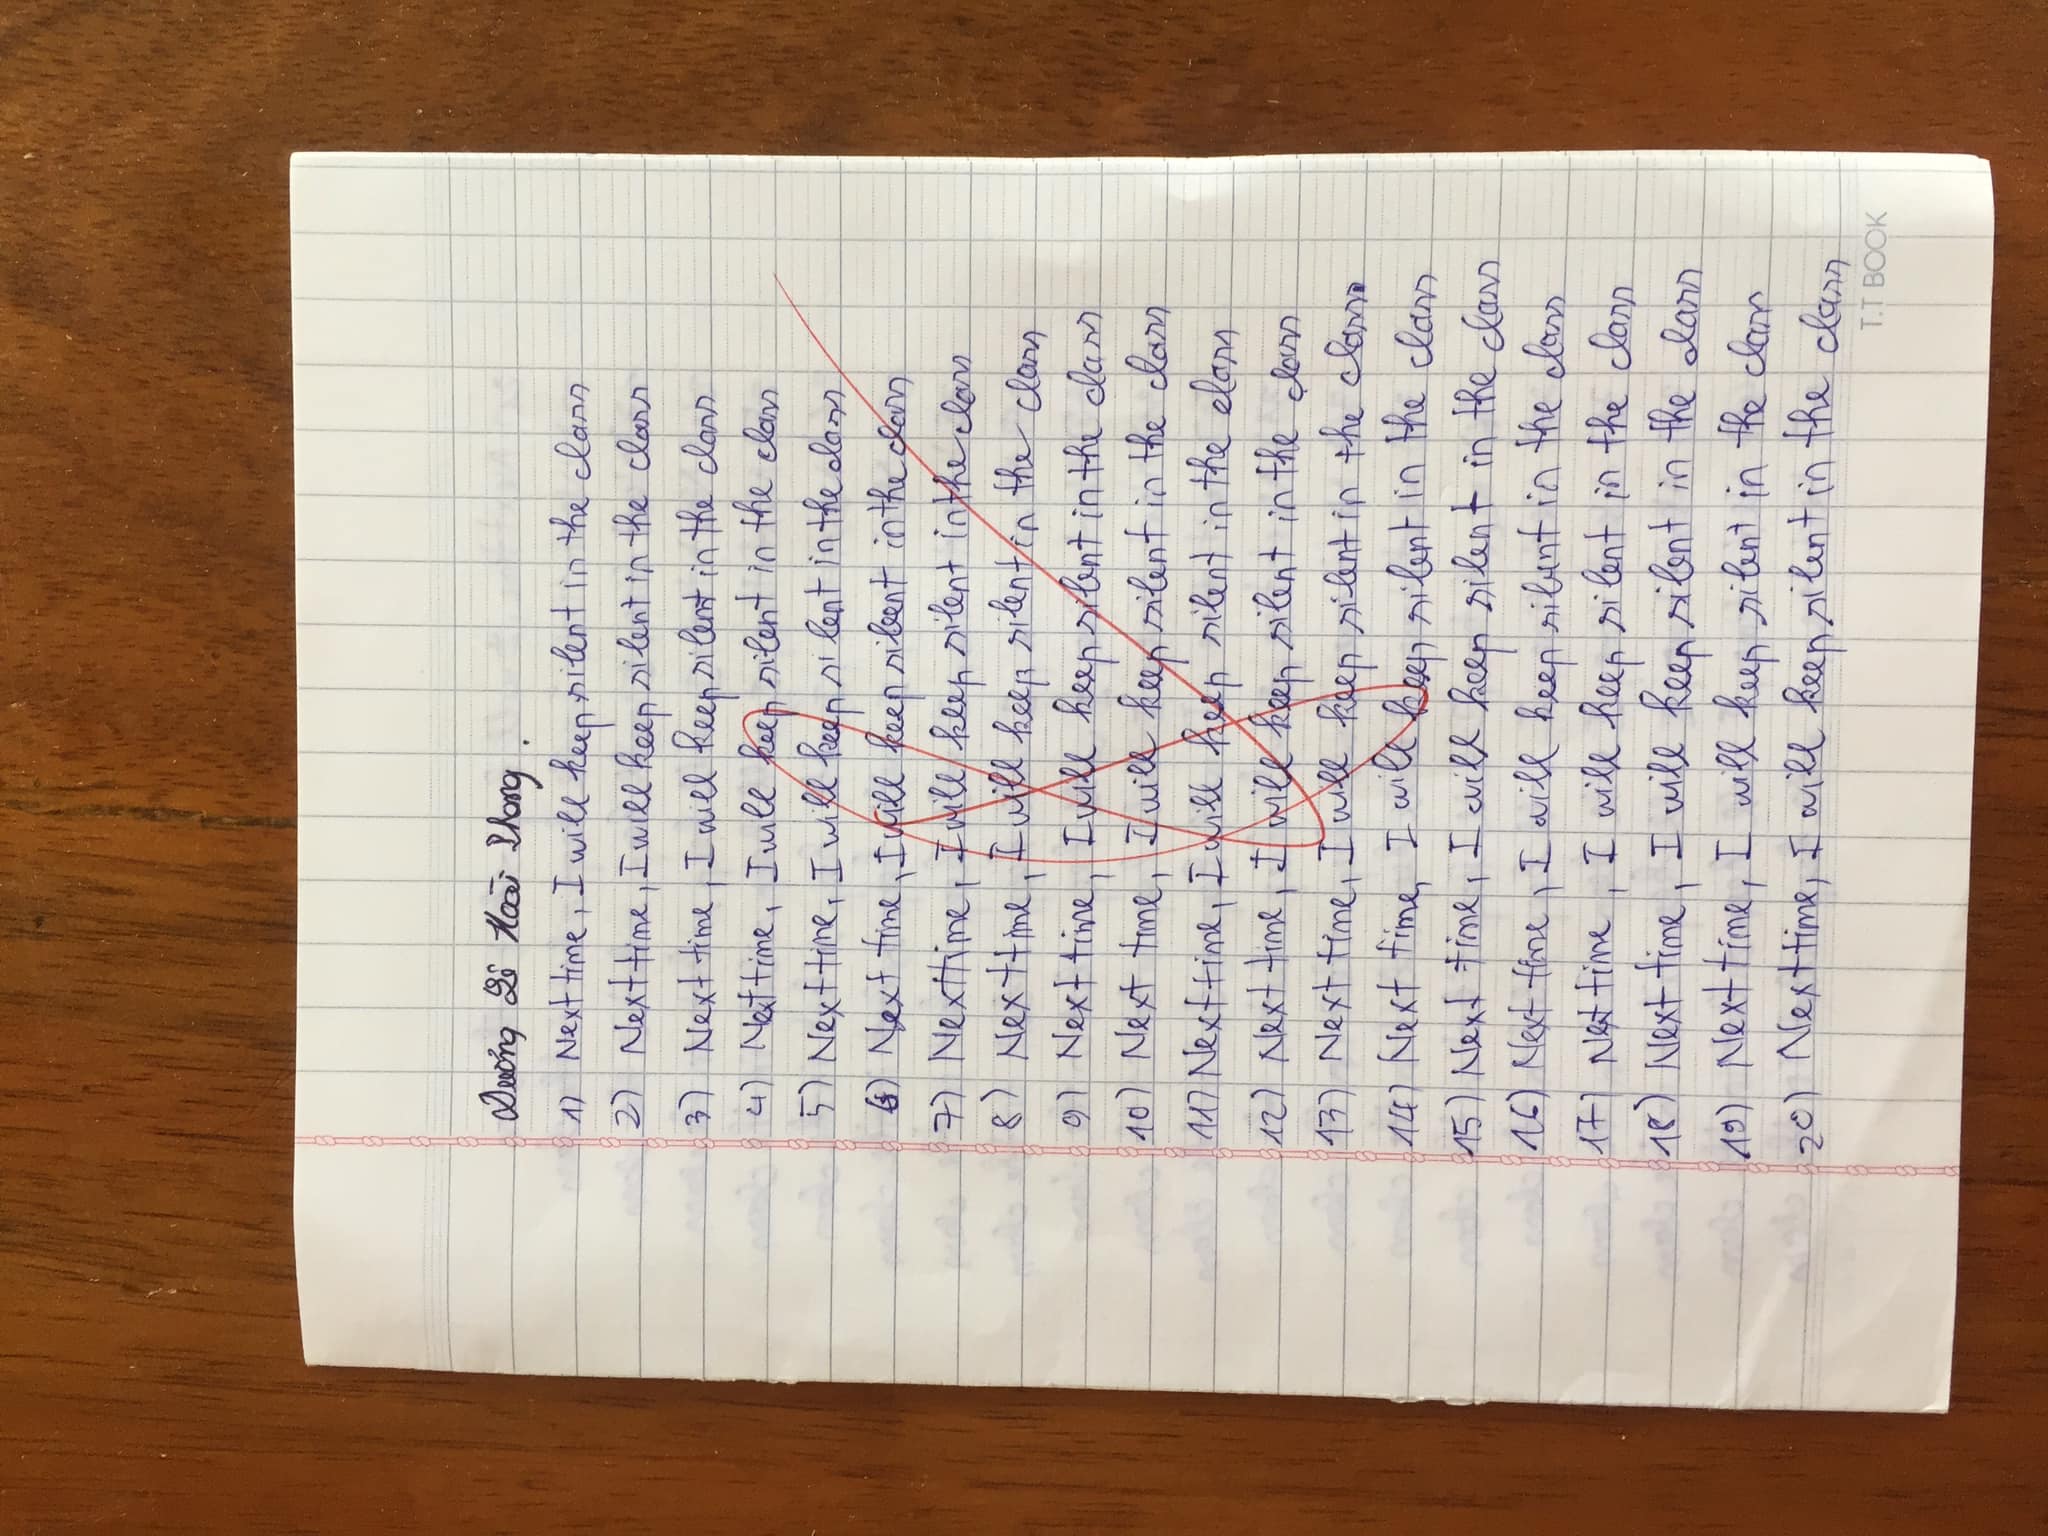 Dương Lê Hoài Thong.
1) Next time, I will keep silent in the class
2) Next time, I will keep silent in the class
3) Next time, I will keep silent in the class
4) Next time, I will keep silent in the class
5) Next time, I will keep silent in the class
6) Next time, I will keep silent in the class
7) Next time, I will keep silent in the class
8) Next time, I will keep silent in the class
9) Next time, I will keep silent in the class
10) Next time, I will keep silent in the class
11) Next time, I will keep silent in the class
12) Next time, I will keep silent in the class
13) Next time, I will keep silent in the class
14) Next time, I will keep silent in the class
15) Next time, I will keep silent in the class
16) Next time, I will keep silent in the class
17) Next time, I will keep silent in the class
18) Next time, I will keep silent in the class
19) Next time, I will keep silent in the class
20) Next time, I will keep silent in the class
T.T BOOK